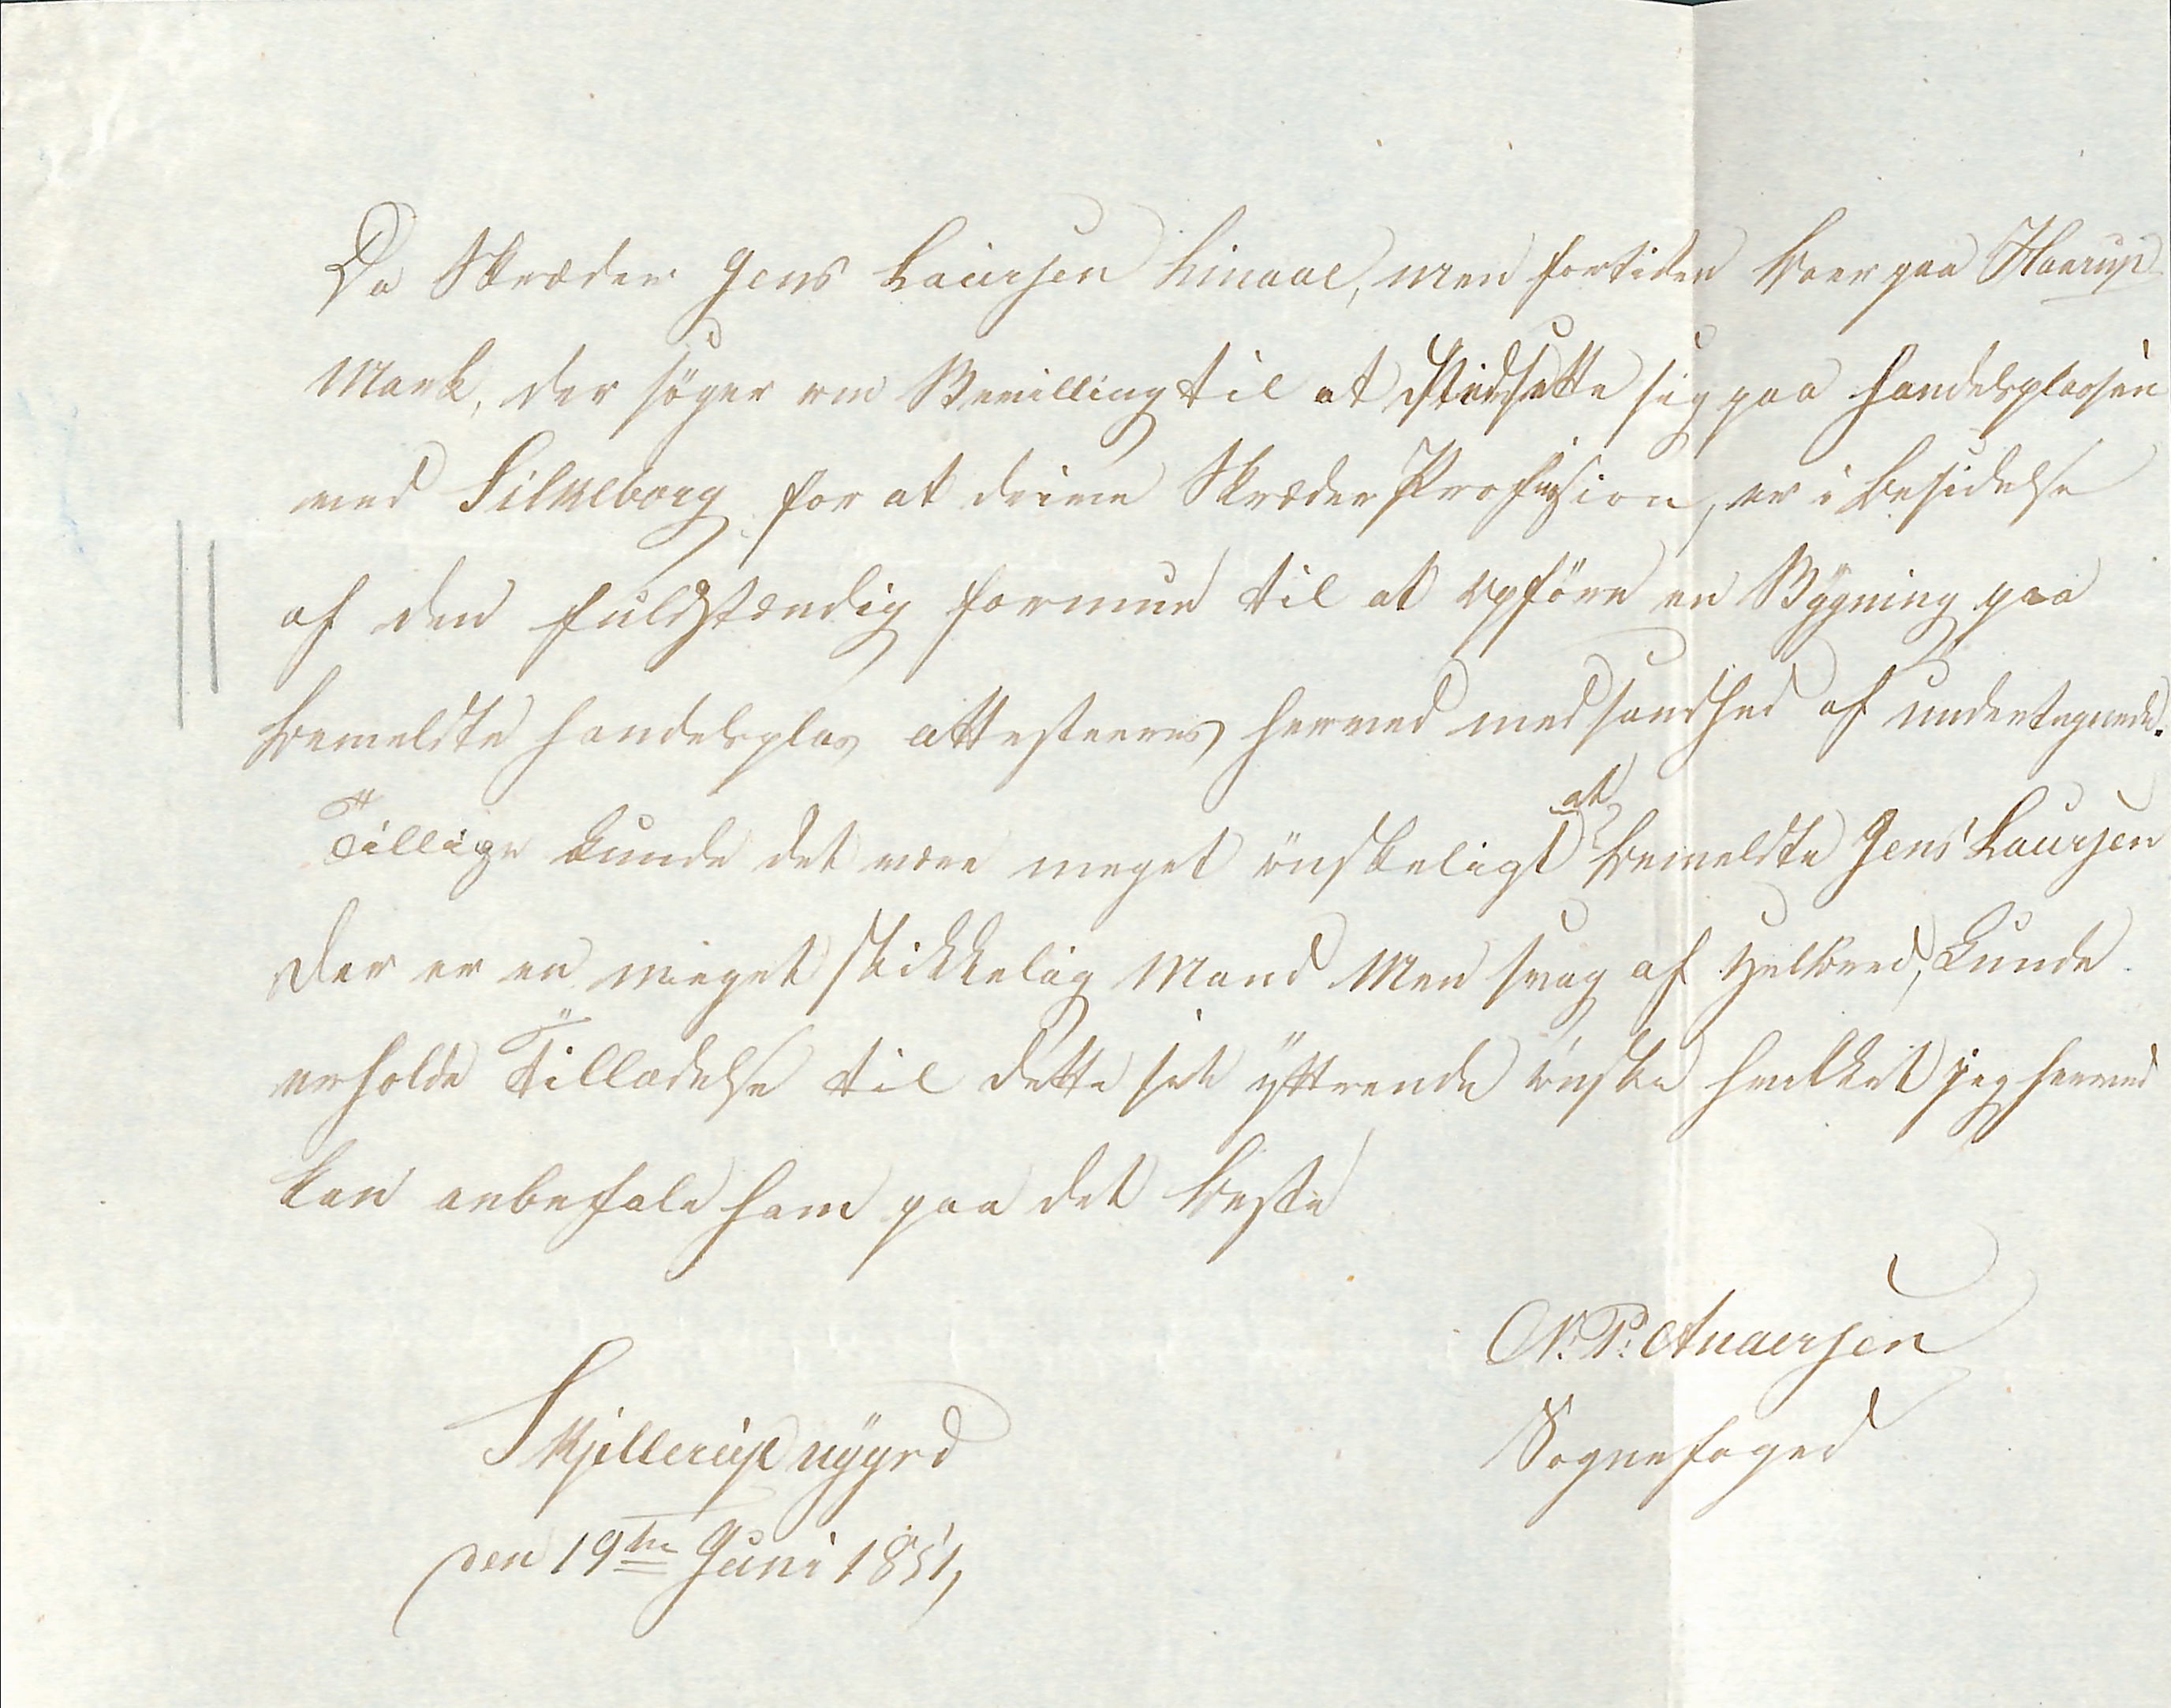 Da Skræder Jens Laursen Linaae, men fortiden boer paa Haarup
Mark, der söger om Bevilling til at Nedsette sig paa Handelsplassen
ved Silkeborg for at drive Skræder Profession, er i besidelse
af den fuldstændig formue til at opföre en Bÿgning paa
bemeldte Handelsplas attesteeres herved med sandhed af undertegnede.
Tillige kunde det være meget önskeligt at bemeldte Jens Laursen
der er en meget skikkelig Mand Men svag af Helbred, kunde
erholde Tilladelse til dette sit ÿttrende önske hvilket jeg herved
kan anbefale ham paa det beste
N. P. Andersen
Sognefoged
Skjellerup nÿgrd
den 19de Juni 1851,